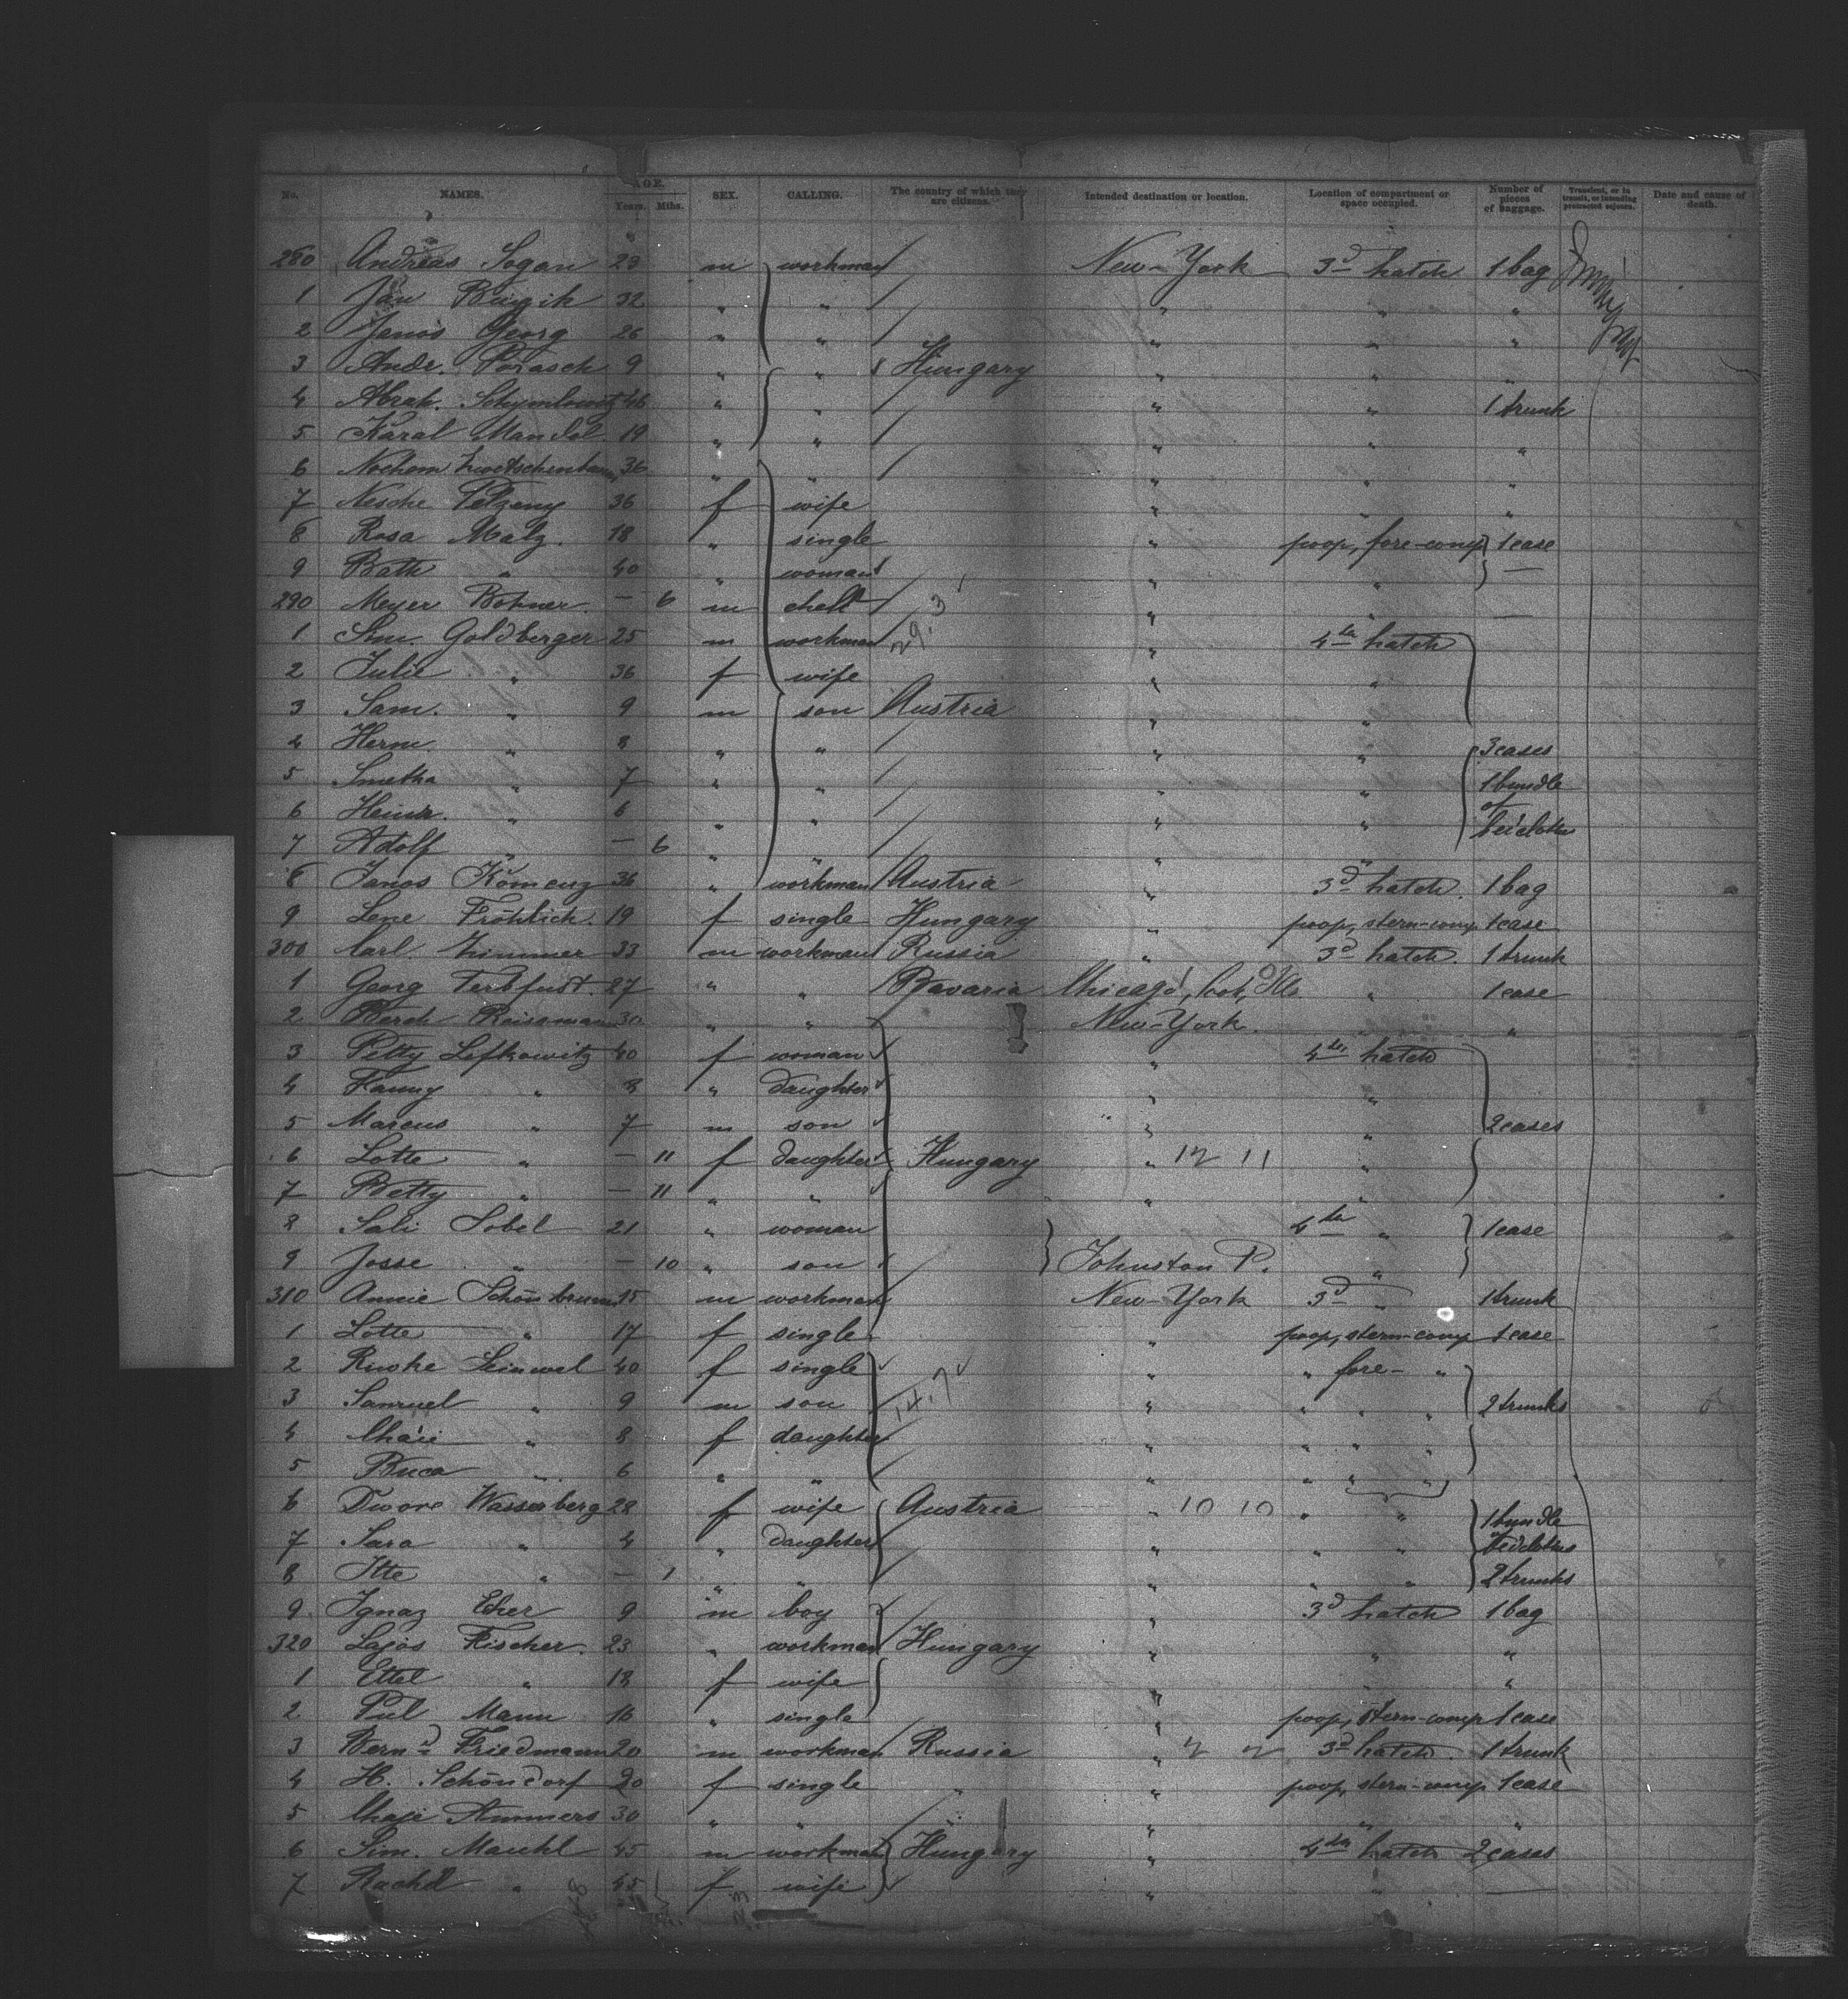 No. NAMES. AGE. Years. Mths. SEX. CALLING. The country of which they are citizens. Intended destination or location. Location of compartment or space occupied. Number of pieces of baggage. Transient, or in transit, or intending protracted sojourn. Date and cause of death.
280 Andreas Sogan 23 m workman New-York 3d hatch 1 bag
1 Jan 32 " " " " "
2 Janos Georg 26 " " " " "
3 Andr. Porasch 9 " " Hungary " " "
4 Abrah. 46 " " " " 1 trunk
5 Karal Mandel 19 " " " " "
6 Nochem 36 " " " " "
7 Nesche 36 f wife " " "
8 Rosa Malz. 18 " single " poop, fore-comp 1 case
9 Bath " 40 " woman " " —
290 Meyer Bohner. — 6 m " " —
1 Sim. Goldberger 25 m workman " 4th hatch
2 Julie " 36 f wife " "
3 Sam. " 9 m son Austria " "
4 Herm. " 8 " " " " 3 cases
5 " 7 " " " " 1 bundle
6 Heinr. " 6 " " " " of
7 Adolf " — 6 " " " "
8 Janos 36 " workman Austria " 3d hatch. 1 bag
9 Lene Fröhlich. 19 f single Hungary " poop, stern-comp. 1 case
300 Carl. Zimmer 33 m workman Russia " 3d hatch. 1 trunk
1 Georg 27 " " Bavaria Chicago, " 1 case
2 Berch Reissmann 30 " " New-York. " "
3 Petty Lefkowitz 40 f woman " 4th hatch
4 Fanny " 8 " daughter " "
5 Marcus " 7 m son " " 2 cases
6 Lotte " — 11 f daughter Hungary " 12 11 "
7 Betty " — 11 " " " "
8 Sali Sobel 21 " woman 4th " 1 case
9 Josse " — 10 " son Johnston P. "
310 Annie Schönbrunn 15 m workman New-York 3d " 1 trunk
1 Lotte " 17 f single " poop, stern-comp 1 case
2 Ruske 40 f single " " fore- "
3 Samuel " 9 m son " " " " 2 trunks
4 Chaie " 8 f daughter " " " "
5 Buca " 6 " " " " " "
6 Dwore Wasserberg 28 f wife Austria " 10 10 " " 1 bundle
7 Sara " 4 " daughter " " " bedclothes
8 Itte " — 1 " " " " " 2 trunks
9. Ignaz Eher 9 m boy " 3d hatch 1 bag
320 Lajos Fischer. 23 " workman Hungary " " "
1 Ettel " 18 f wife " " "
2 Mann 16 " single " poop, stern-comp 1 case
3 Bernd Friedmann 20 m workman Russia " 3d hatch. 1 trunk
4 H. Schöndorf 20 f single " " poop, stern-comp 1 case
5 Chaje Ammers 30 " " " " "
6 Sim. 45 m workman Hungary " 4th hatch 2 cases
7 Rachel " 45 f wife " " —